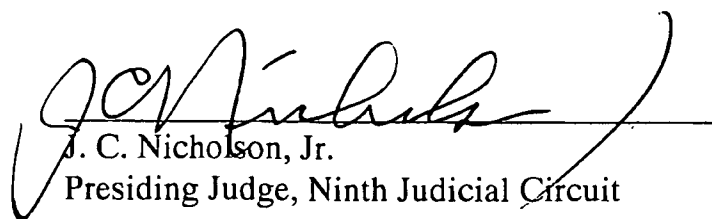 JCNicholson
J. C. Nicholson, Jr.
Presiding Judge, Ninth Judicial Circuit